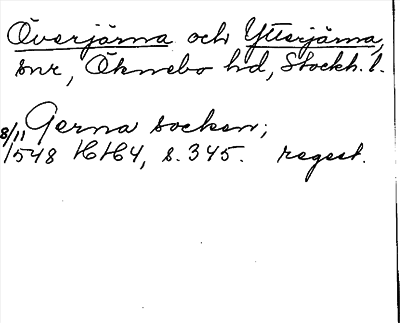 Överjärna och Ytterjärna,
snr, Öknebo hd, Stockh. l.
Gerna socken;
8/11 1548 HH4, s. 345. regest.